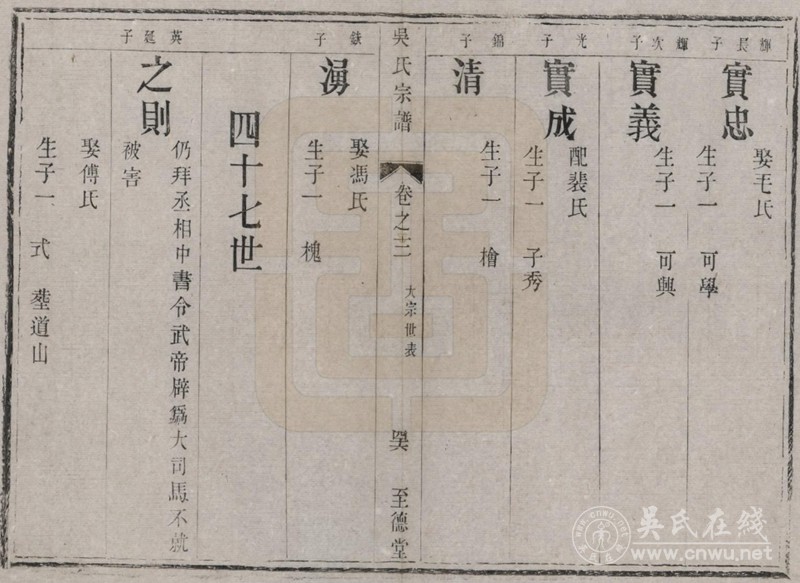 輝長子
實忠
娶毛氏
生子一 可學
輝次子
實義
生子一 可興
光子
實成
配裴氏
生子一 子秀
錦子
清
生子一 檜
吳氏宗譜
卷之三
大宗世表
至德堂
鉞子
湧
娶馮氏
生子一 槐
四十七世
英延子
之則
仍拜丞相中書令武帝辟爲大司馬不就
被害
娶傅氏
生子一 式 塟道山
吳氏在线
www.cnwu.net